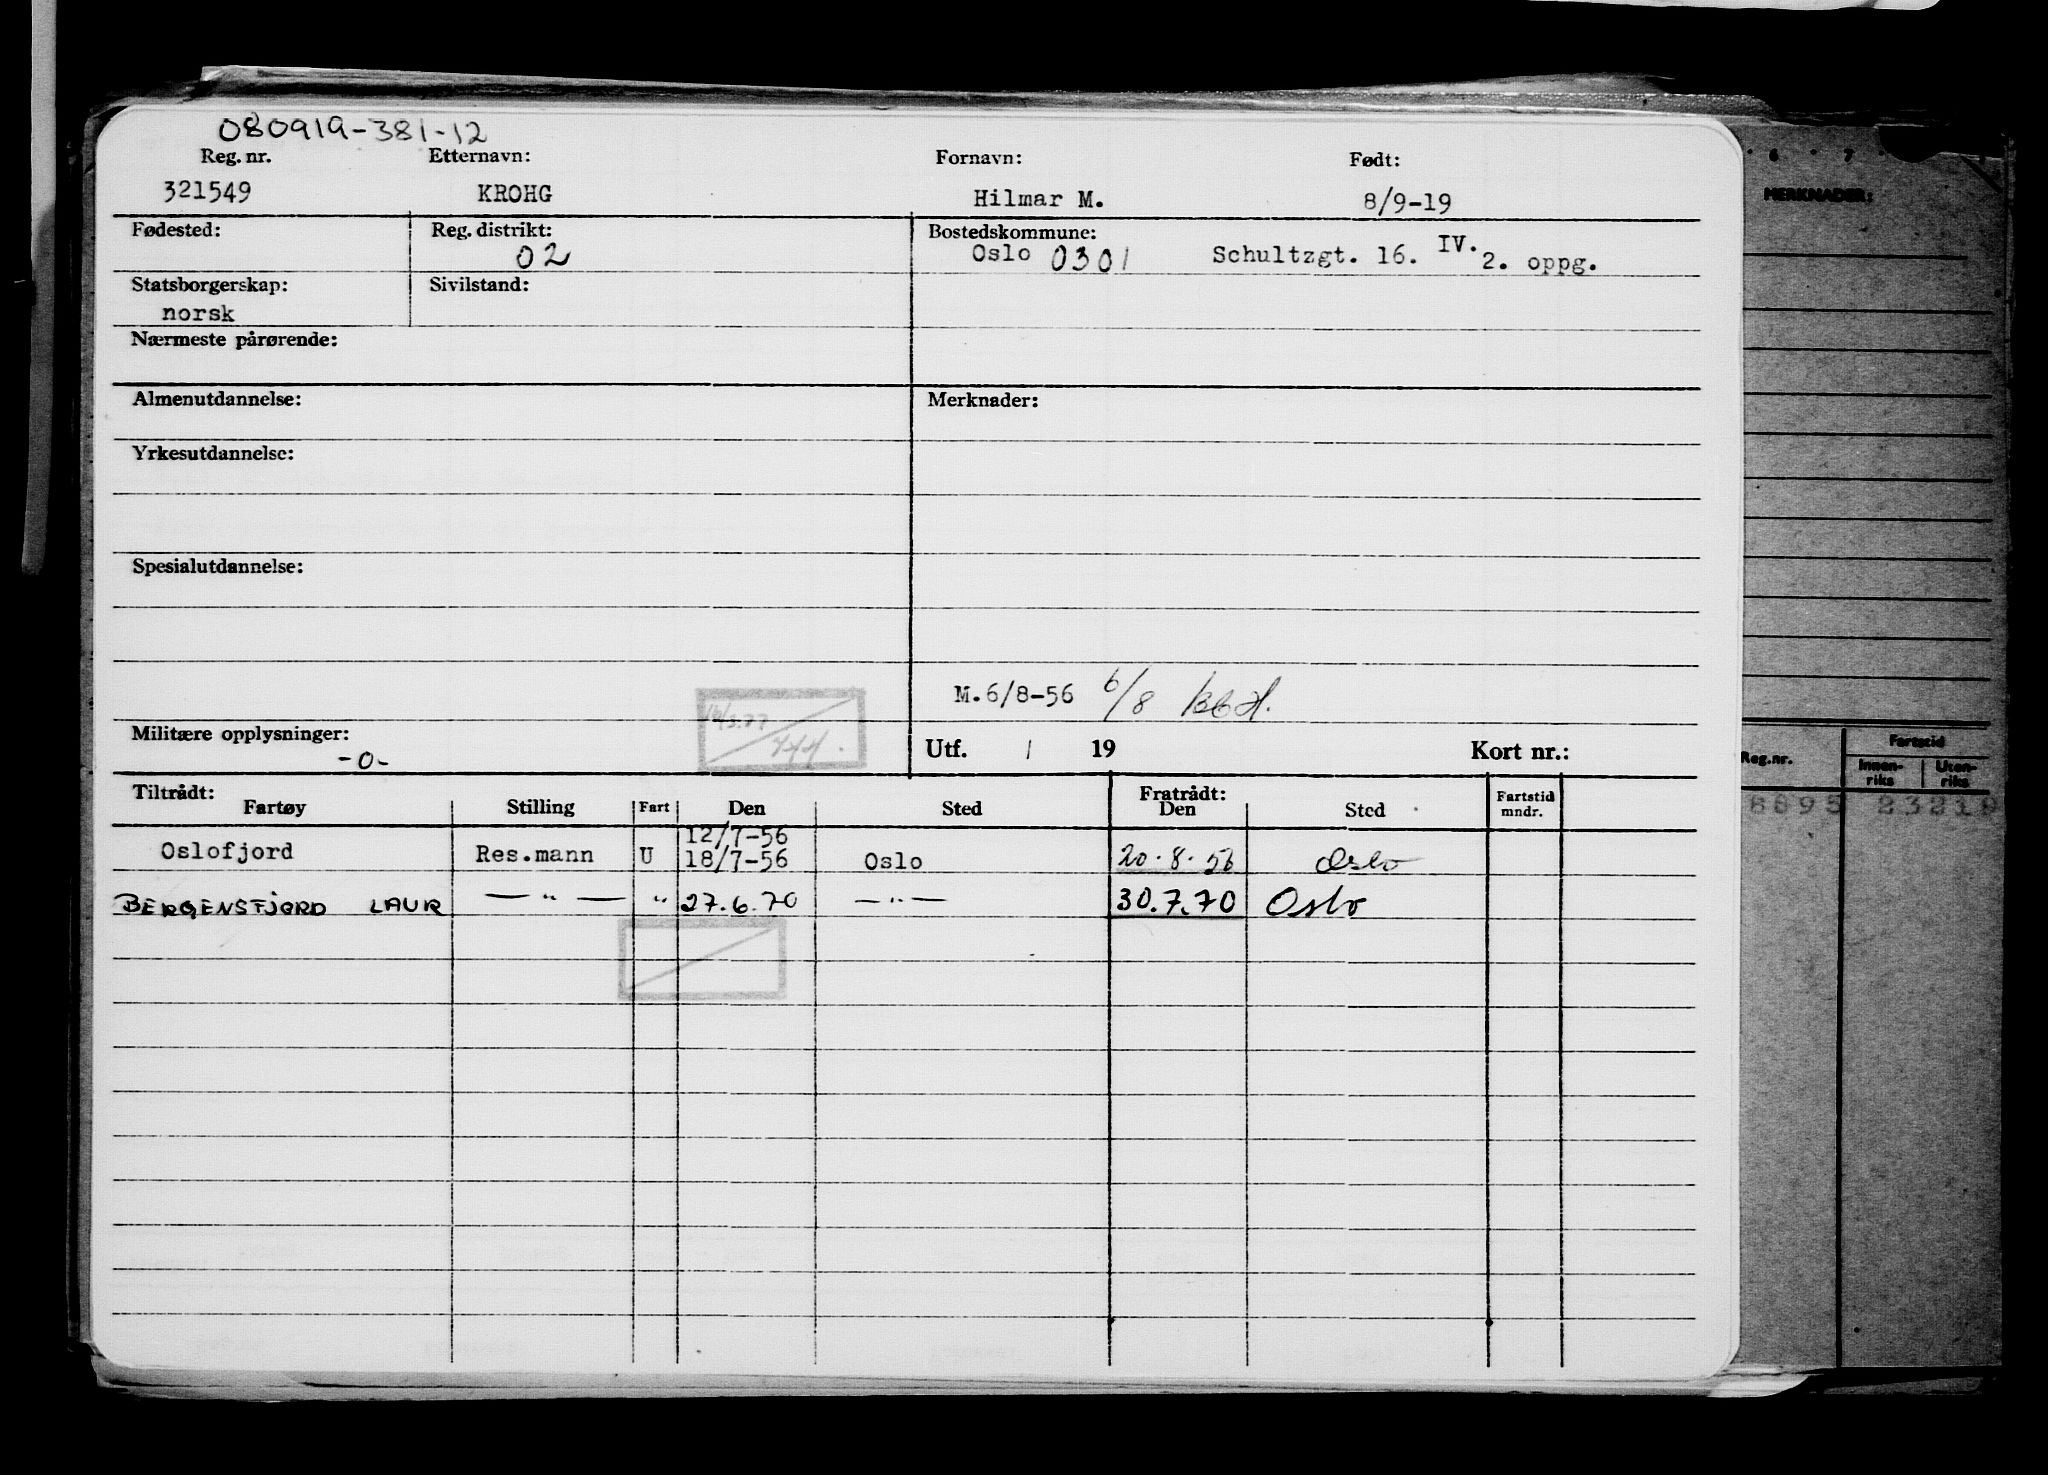 080919-381-12
Reg. nr. Etternavn: Fornavn: Født:
321549 KROHG Hilmar M. 8/9-19
Fødested: Reg. distrikt: Bostedskommune:
02 Oslo 0301 Schultzgt. 16. IV. 2. oppg.
Statsborgerskap: Sivilstand:
norsk
Nærmeste pårørende:
Almenutdannelse: Merknader:
Yrkesutdannelse:
Spesialutdannelse:
M.6/8-56 6/8
Militære opplysninger: Utf. / 19 Kort nr.:
-0-
Tiltrådt: Fratrådt:
Fartøy Stilling Fart Den Sted Den Sted Fartstid mndr.
12/7-56
Oslofjord Res.mann U 18/7-56 Oslo 20.8.56 Oslo
BERGENSFJORD LAUR — " — " 27.6.70 — " — 30.7.70 Oslo
6 7
MERKNADER:
Reg.nr. Fartstid
Innen-riks Uten-riks